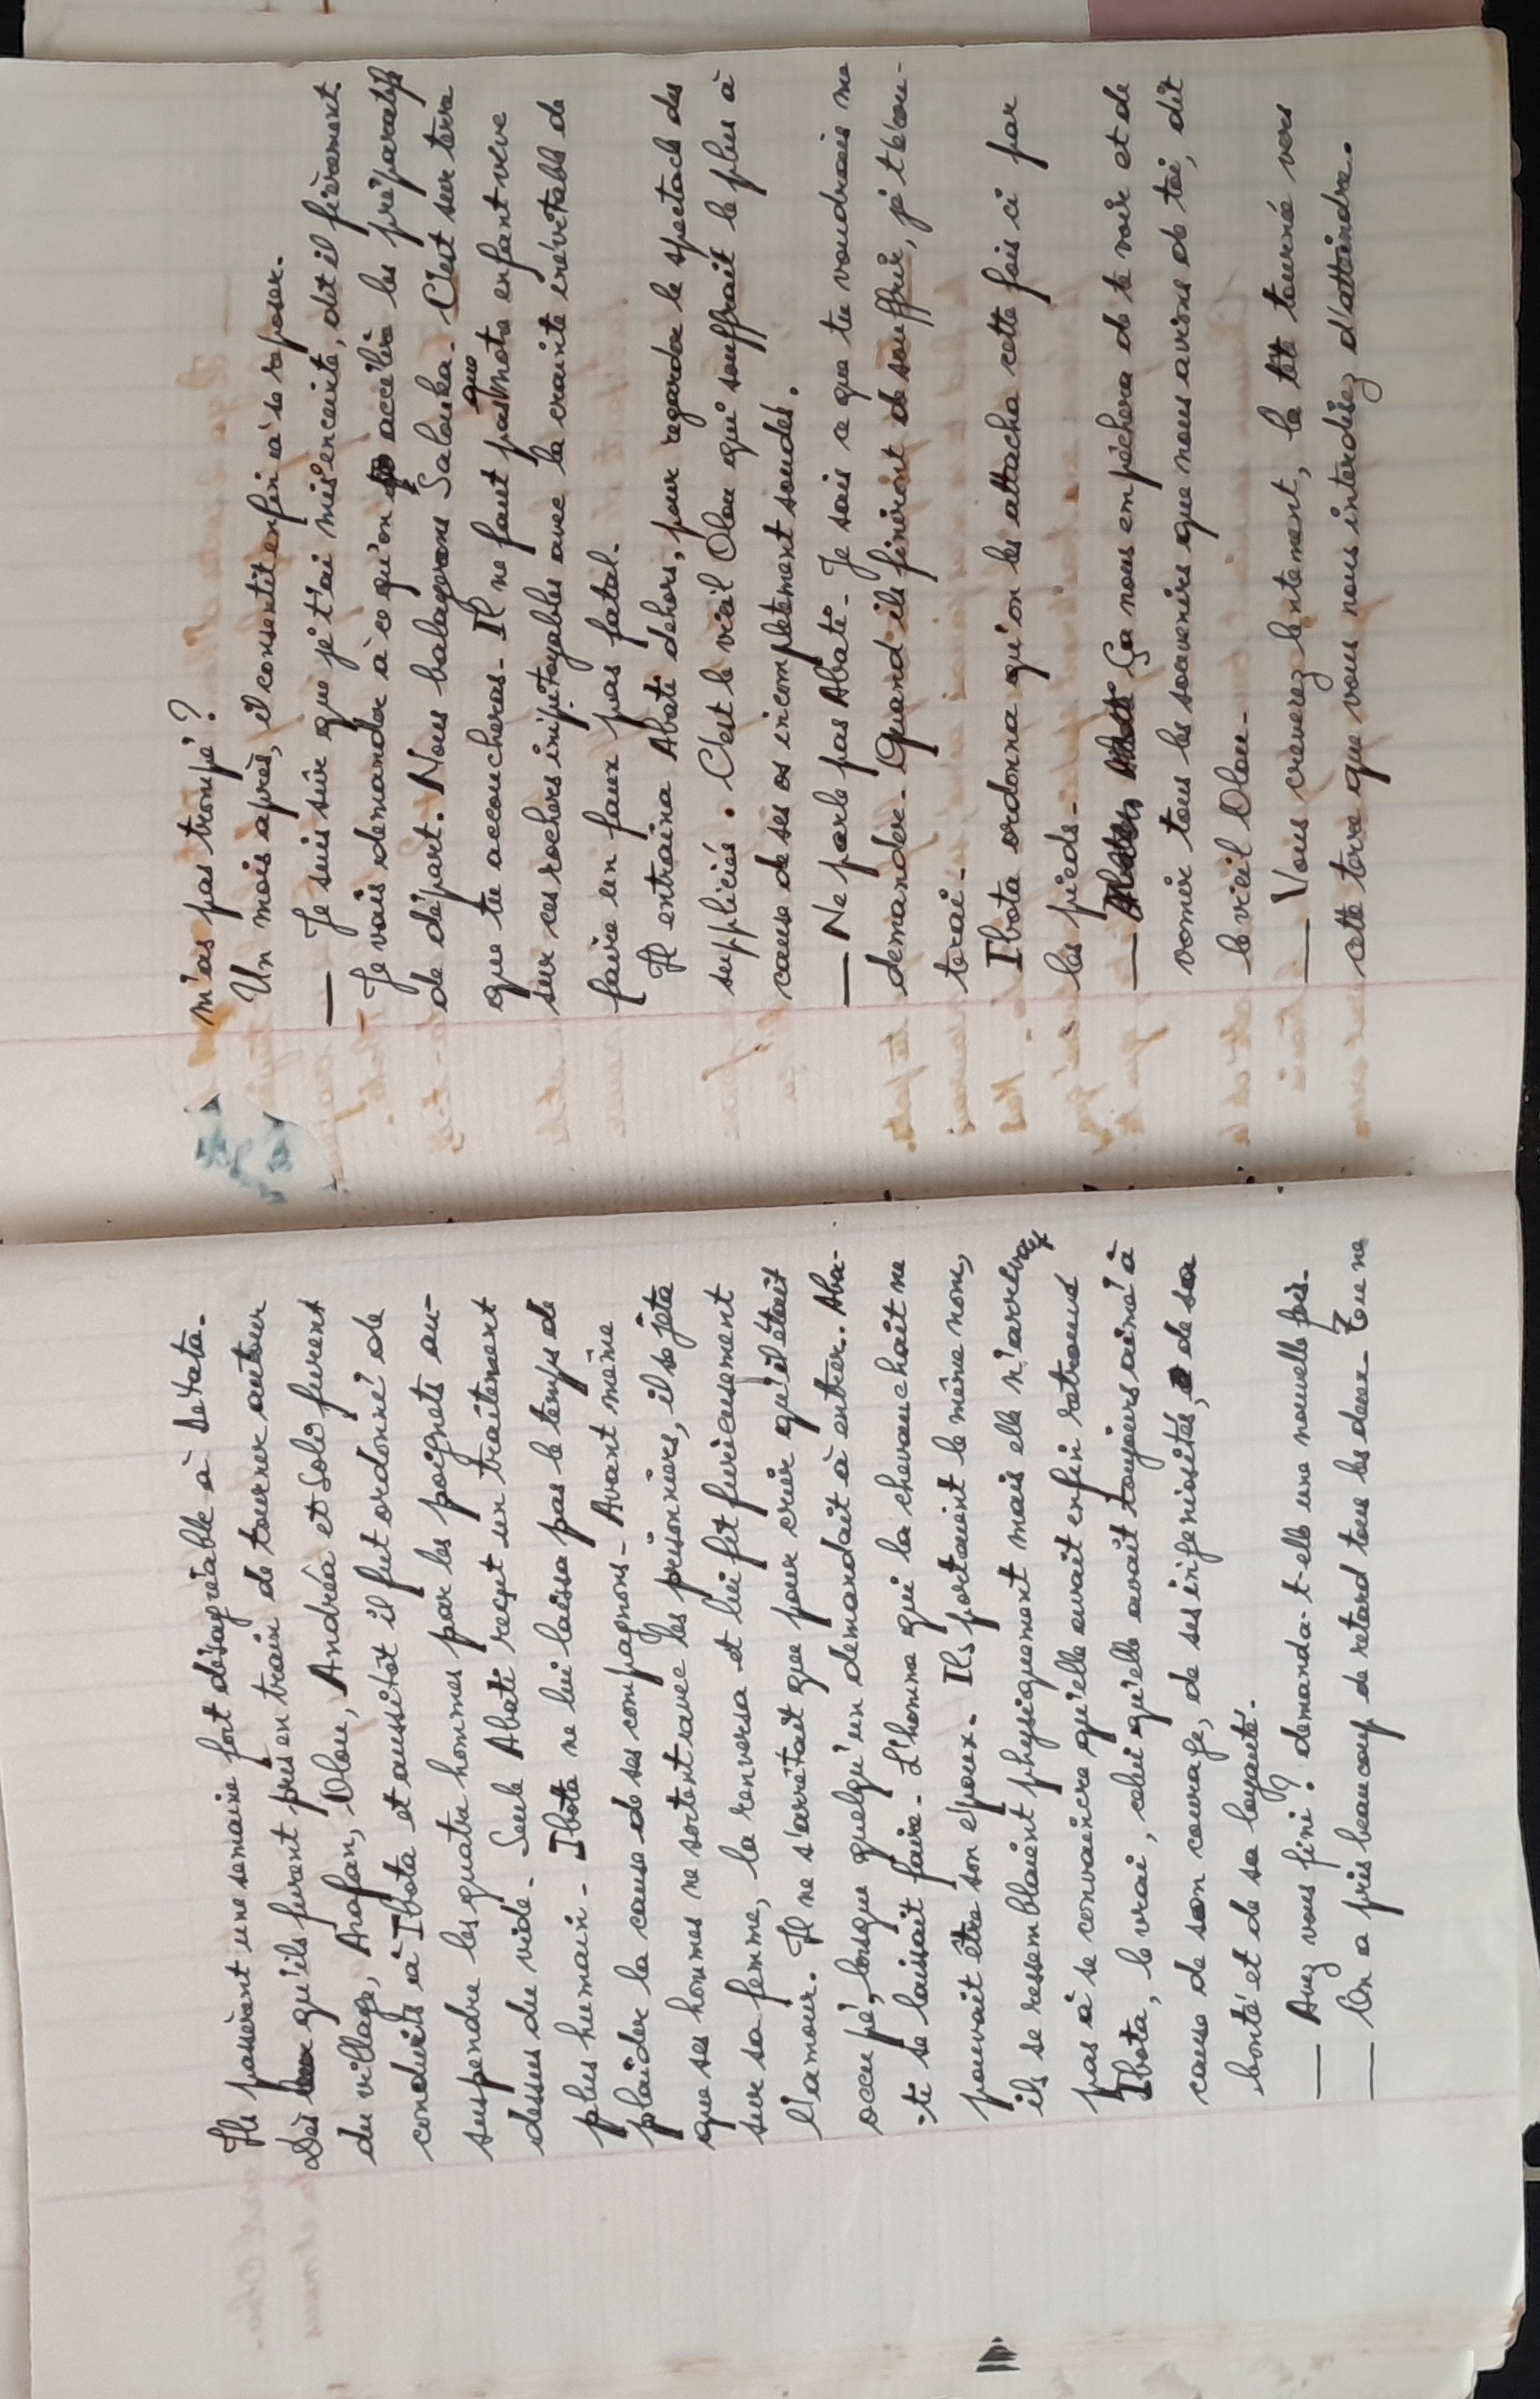 Ils passèrent une semaine fort désagréable à Detata.
Dès qu'ils furent pris en train de tourner autour
du village, Arafan, Olou, Andréa et Soli furent
conduits à Ibota et aussitôt il fut ordonné de
suspendre les quatre hommes par les poignets au-
dessus du vide. Seule Abati reçut un traitement
plus humain. Ibota ne lui laissa pas le temps de
plaider la cause de ses compagnons. Avant même
que ses hommes ne sortent avec les prisonniers, il se jeta
sur sa femme, la renversa et lui fit furieusement
l'amour. Il ne s'arrêtait que pour crier qu'il était
occupé, lorsque quelqu'un demandait à entrer. Aba-
-ti se laissait faire. L'homme qui la chevauchait ne
pouvait être son époux. Ils portaient le même nom,
ils se ressemblaient physiquement mais elle n'arrivait
pas à se convaincre qu'elle avait enfin retrouvé
Ibota, le vrai, celui qu'elle avait toujours aimé à
cause de son courage, de ses ingéniosités, de sa
bonté et de sa loyauté.
— Avez vous fini ? demanda-t-elle une nouvelle fois.
— On a pris beaucoup de retard tous les deux. Tu ne
m'as pas trompé ?
Un mois après, il consentit enfin à se reposer.
— Je suis sûr que je t'ai mis enceinte, dit il fièrement
Je vais demander à ce qu'on accélère les préparatifs
de départ. Nous balayerons Salouka. C'est sur terre
que tu accoucheras. Il ne faut pas que notre enfant vive
sur ces rochers impitoyables avec la crainte inévitable de
faire un faux pas fatal.
Il entraîna Abati dehors, pour regarder le spectacle des
suppliciés. C'est le vieil Olou qui souffrait le plus à
cause de ses os incomplètement soudés.
— Ne parle pas Abati. Je sais ce que tu voudrais me
demander. Quand ils finiront de souffrir, je t'écou-
terai.
Ibota ordonna qu'on les attacha cette fois ci par
les pieds.
— Ça nous empêchera de te voir et de
vomir tous les souvenirs que nous avions de toi, dit
le vieil Olou.
— Vous crèverez lentement, la tête tournée vers
cette terre que vous nous interdisez d'atteindre.